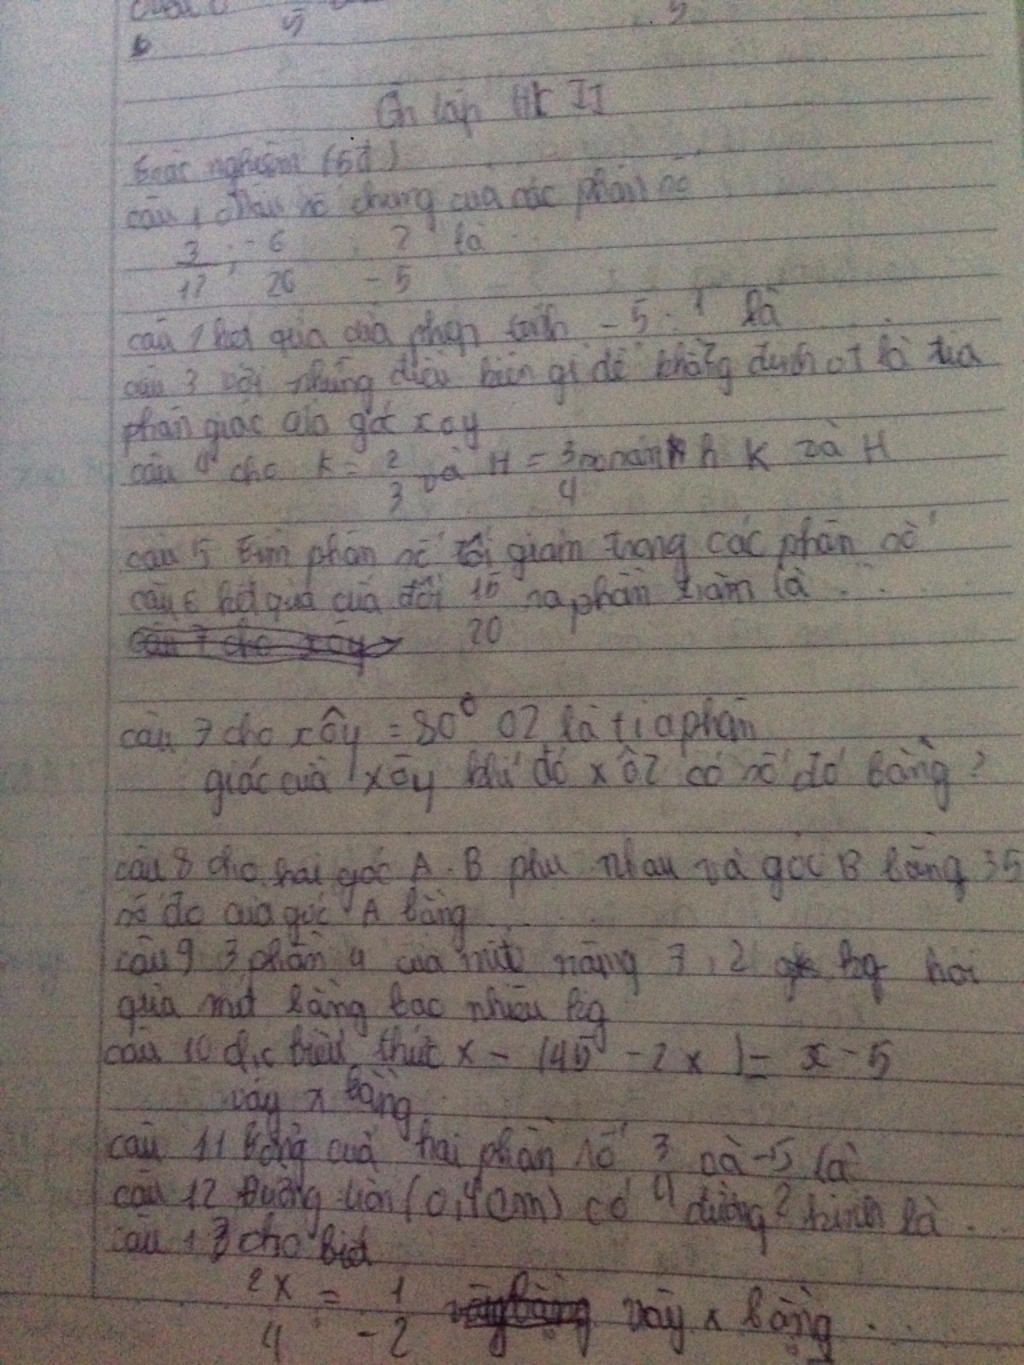 Ôn tập HK II
Trắc nghiệm (5đ)
câu 1 Mẫu số chung của các phân số
3 ; -6 2 là ..
17 26 -5
câu 2 kết quả của phép tính - 5 : 1 là
câu 3 với những điều kiện gì để khẳng định OT là tia
phân giác của góc xoy
câu 4 cho K = 2 và H = 3 so sánh K và H
3 4
câu 5 tìm phân số tối giản trong các phân số
câu 6 kết quả của đổi 15 ra phần trăm là ...
20
câu 7 cho xôy = 80° OZ là tia phân
giác của xôy khi đó xôz có số đo bằng ?
câu 8 cho hai góc A. B phụ nhau và góc B bằng 35
số đo của góc A bằng
câu 9 3 phần 4 của mít nặng 7,2 kg hỏi
quả mít bằng bao nhiêu kg
câu 10 biểu thức x - (45 - 2x) = x - 5
vậy x bằng
câu 11 tổng của hai phân số 3 và -5 là
4 2
câu 12 Đường tròn (0,4cm) có đường kính là ...
câu 13 cho biết
2x = 1 vậy x bằng ...
4 -2